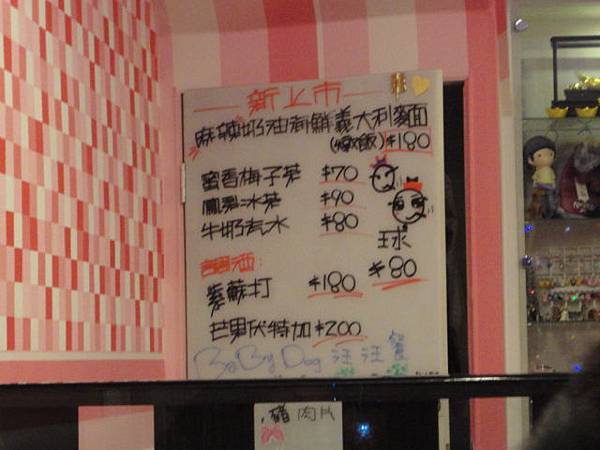 新上市
麻辣奶油海鮮義大利麵
(燉飯)$180
蜜香梅子茶 $70
鳳梨冰茶 $90
牛奶冰 $80
球 $80
調酒:
紫蘇打 $180
芒果伏特加 $200
BaByDog 汪汪餐
豬肉片